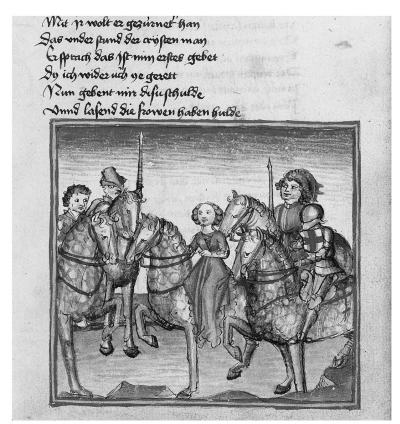 Mit Ir wolt er gezürnet han
Das vnder stund der cristen man
Er sprach das Ist min erstes gebet
Dz ich wider uch ye gerett
Nun gebent mir die schulde
Vnnd lasend die frowen haben hulde